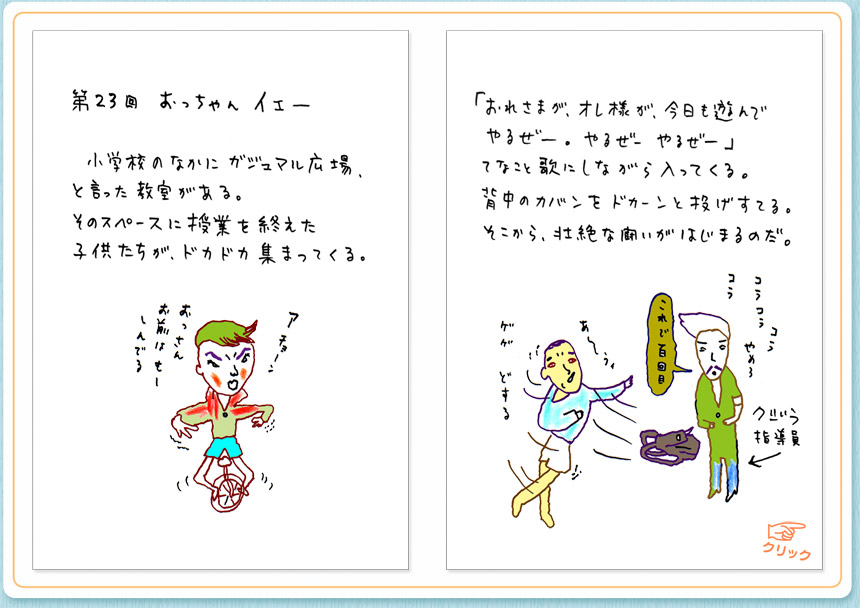 第23回 おっちゃん イェー
小学校のなかに ガジュマル広場、
と言った教室がある。
そのスペースに授業を終えた
子供たちが、ドカドカ集まってくる。
アチョーン
おっさん
お前はもー
しんでる
「おれさまが、オレ様が、今日も遊んで
やるぜー。やるぜー やるぜー」
てなこと歌にしながら入ってくる。
背中のカバンをドカーンと投げすてる。
そこから、壮絶な闘いがはじまるのだ。
コラ
コラコラ
コラ
やめろ
これで百回目
あ〜うぃ
ゲゲ
どする
指導員
クリック